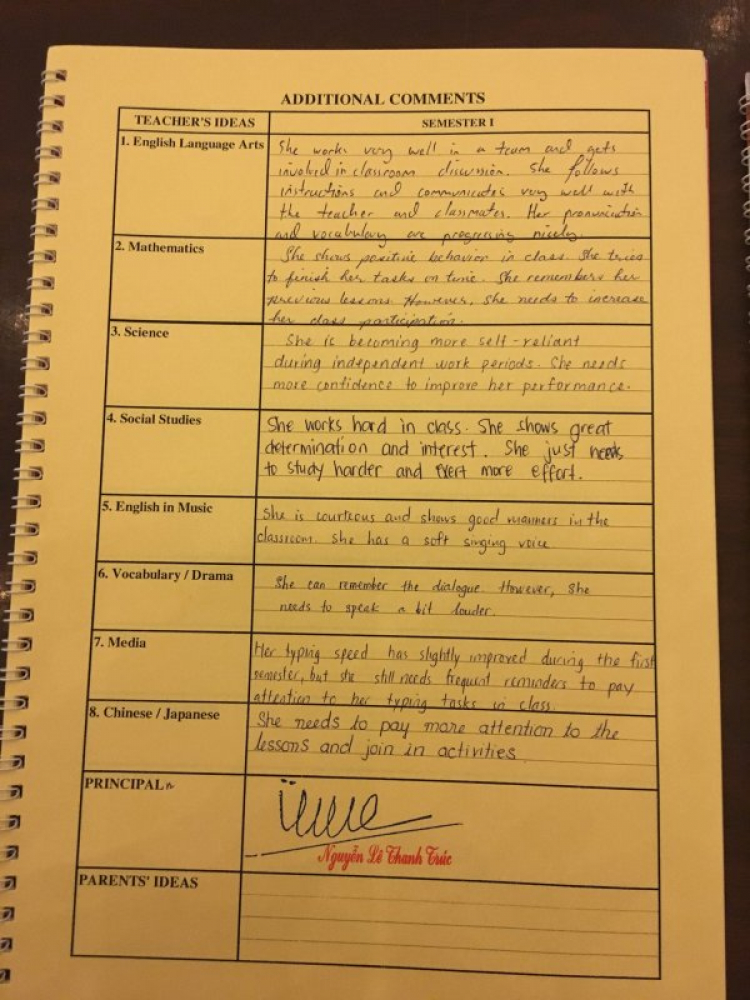 ADDITIONAL COMMENTS
TEACHER'S IDEAS
SEMESTER I
1. English Language Arts
She works very well in a team and gets
involved in classroom discussion. She follows
instructions and communicates very well with
the teacher and classmates. Her pronunciation
and vocabulary are progressing nicely.
2. Mathematics
She shows positive behavior in class. She tries
to finish her tasks on time. She remembers her
previous lessons. However, she needs to increase
her class participation.
3. Science
She is becoming more self-reliant
during independent work periods. She needs
more confidence to improve her performance.
4. Social Studies
She works hard in class. She shows great
determination and interest. She just needs
to study harder and exert more effort.
5. English in Music
She is courteous and shows good manners in the
classroom. She has a soft singing voice
6. Vocabulary / Drama
She can remember the dialogue. However, she
needs to speak a bit louder.
7. Media
Her typing speed has slightly improved during the first
semester, but she still needs frequent reminders to pay
attention to her typing tasks in class.
8. Chinese / Japanese
She needs to pay more attention to the
lessons and join in activities.
PRINCIPAL
Nguyễn Lê Thanh Trúc
PARENTS' IDEAS